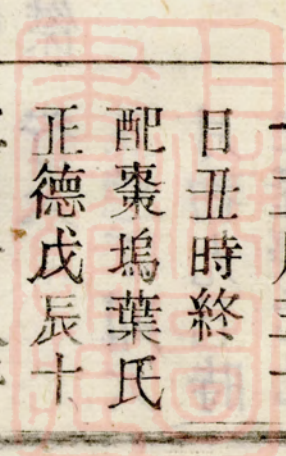 日丑時終
配棗塢葉氏
正德戊辰十